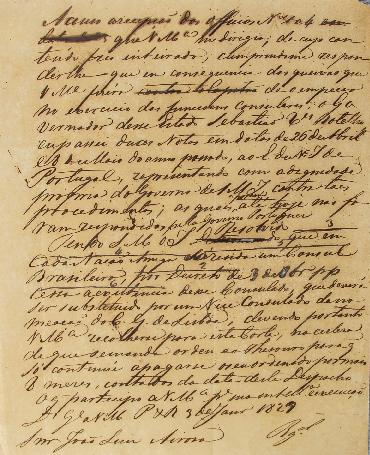 Accuso a recepção dos officios Nº 1 a 4
que V Mᶜᵉ me dirigio; de cujo con
tendo fico inteirado; cumprindome respon
derlhe que em consequencia das queixas que
V Mᶜᵉ
no exercicio das funcções Consulares; o Go
vernador desse Estado Sebastião Vº Botelho
eu passei duas Notas em datas de 26 de Abril
e 8 de Maio do anno passado, ao E. de N. S. de
Portugal, representando com a dignidade
propria do Governo de S M I, contra taes
procedimentos; as quaes até hoje não fo
ram respondidas pelo Governo Portuguez
Tendo S. M. O I. Resolvido que em
cada Nação Amiga um Consul
Brasileiro, por Decreto de 3 de
cessa a existencia desse Consulado, que devera
ser substituido por um Vice Consulado da no
meação do C. G. de Lisboa, devendo portanto
V Mᶜᵉ recolherse para esta Corte, na certeza
de que se manda ordem ao Thesouro para q
se continue a pagarse o seu ordenado por mais
mezes, contados da data deste Despacho
o q participo a V Mᶜᵉ pª sua intellᵃ e execução
D. Gᵉ a V M P. R. 3 de Janrº 1829
Snr João Luis Airosa